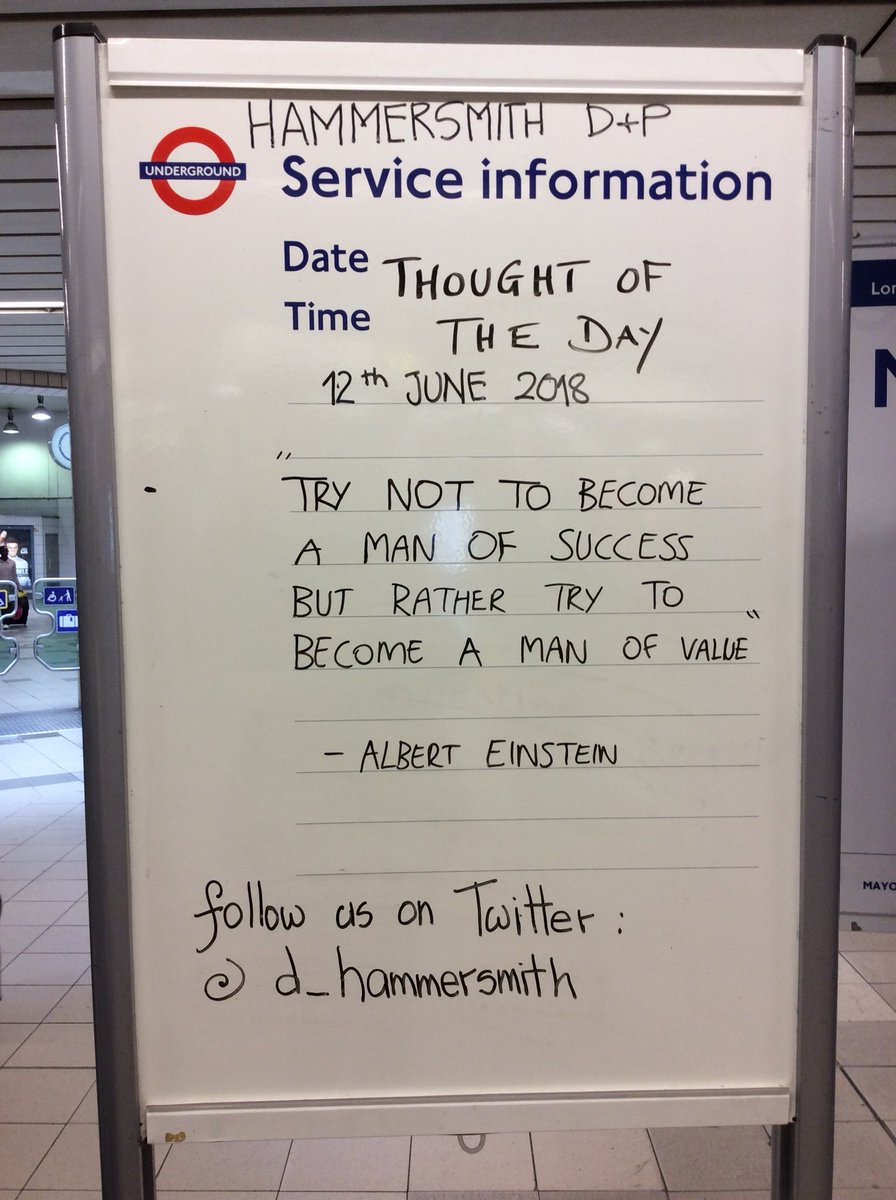 HAMMERSMITH D+P
UNDERGROUND
Service information
Date
THOUGHT OF
Time
THE DAY
12th JUNE 2018
"
TRY NOT TO BECOME
A MAN OF SUCCESS
BUT RATHER TRY TO
BECOME A MAN OF VALUE"
- ALBERT EINSTEIN
follow us on Twitter:
@d_hammersmith